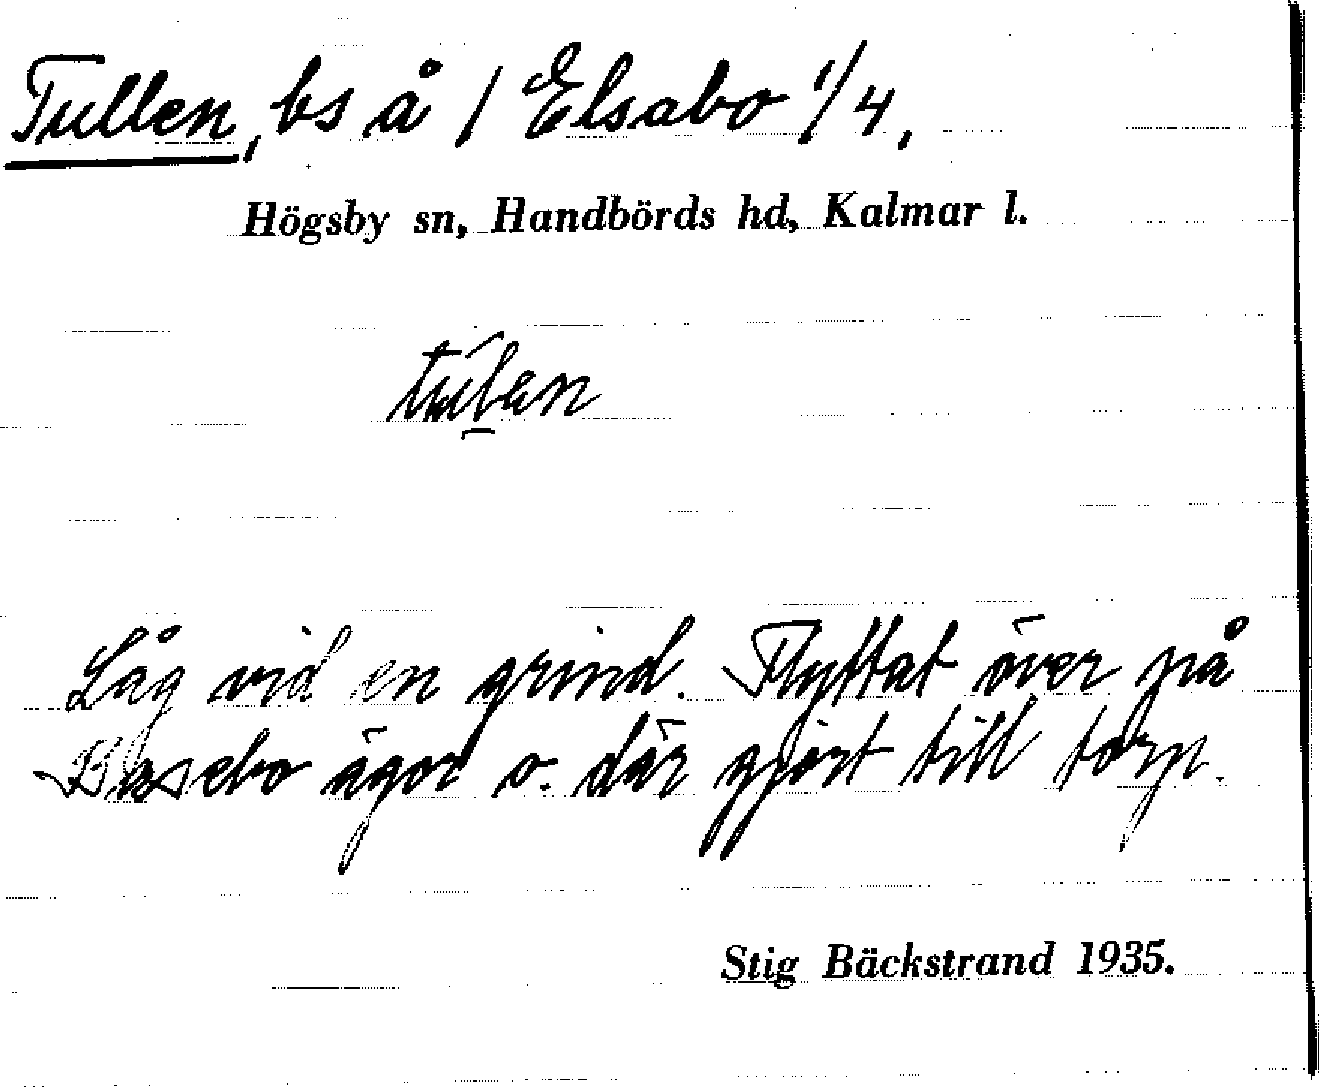 Tullen, bs å / Elsabo 1/4,
Högsby sn, Handbörds hd, Kalmar l.
Låg vid en grind. Flyttat över på
Basebo ägor o. där gjort till torp.
Stig Bäckstrand 1935.